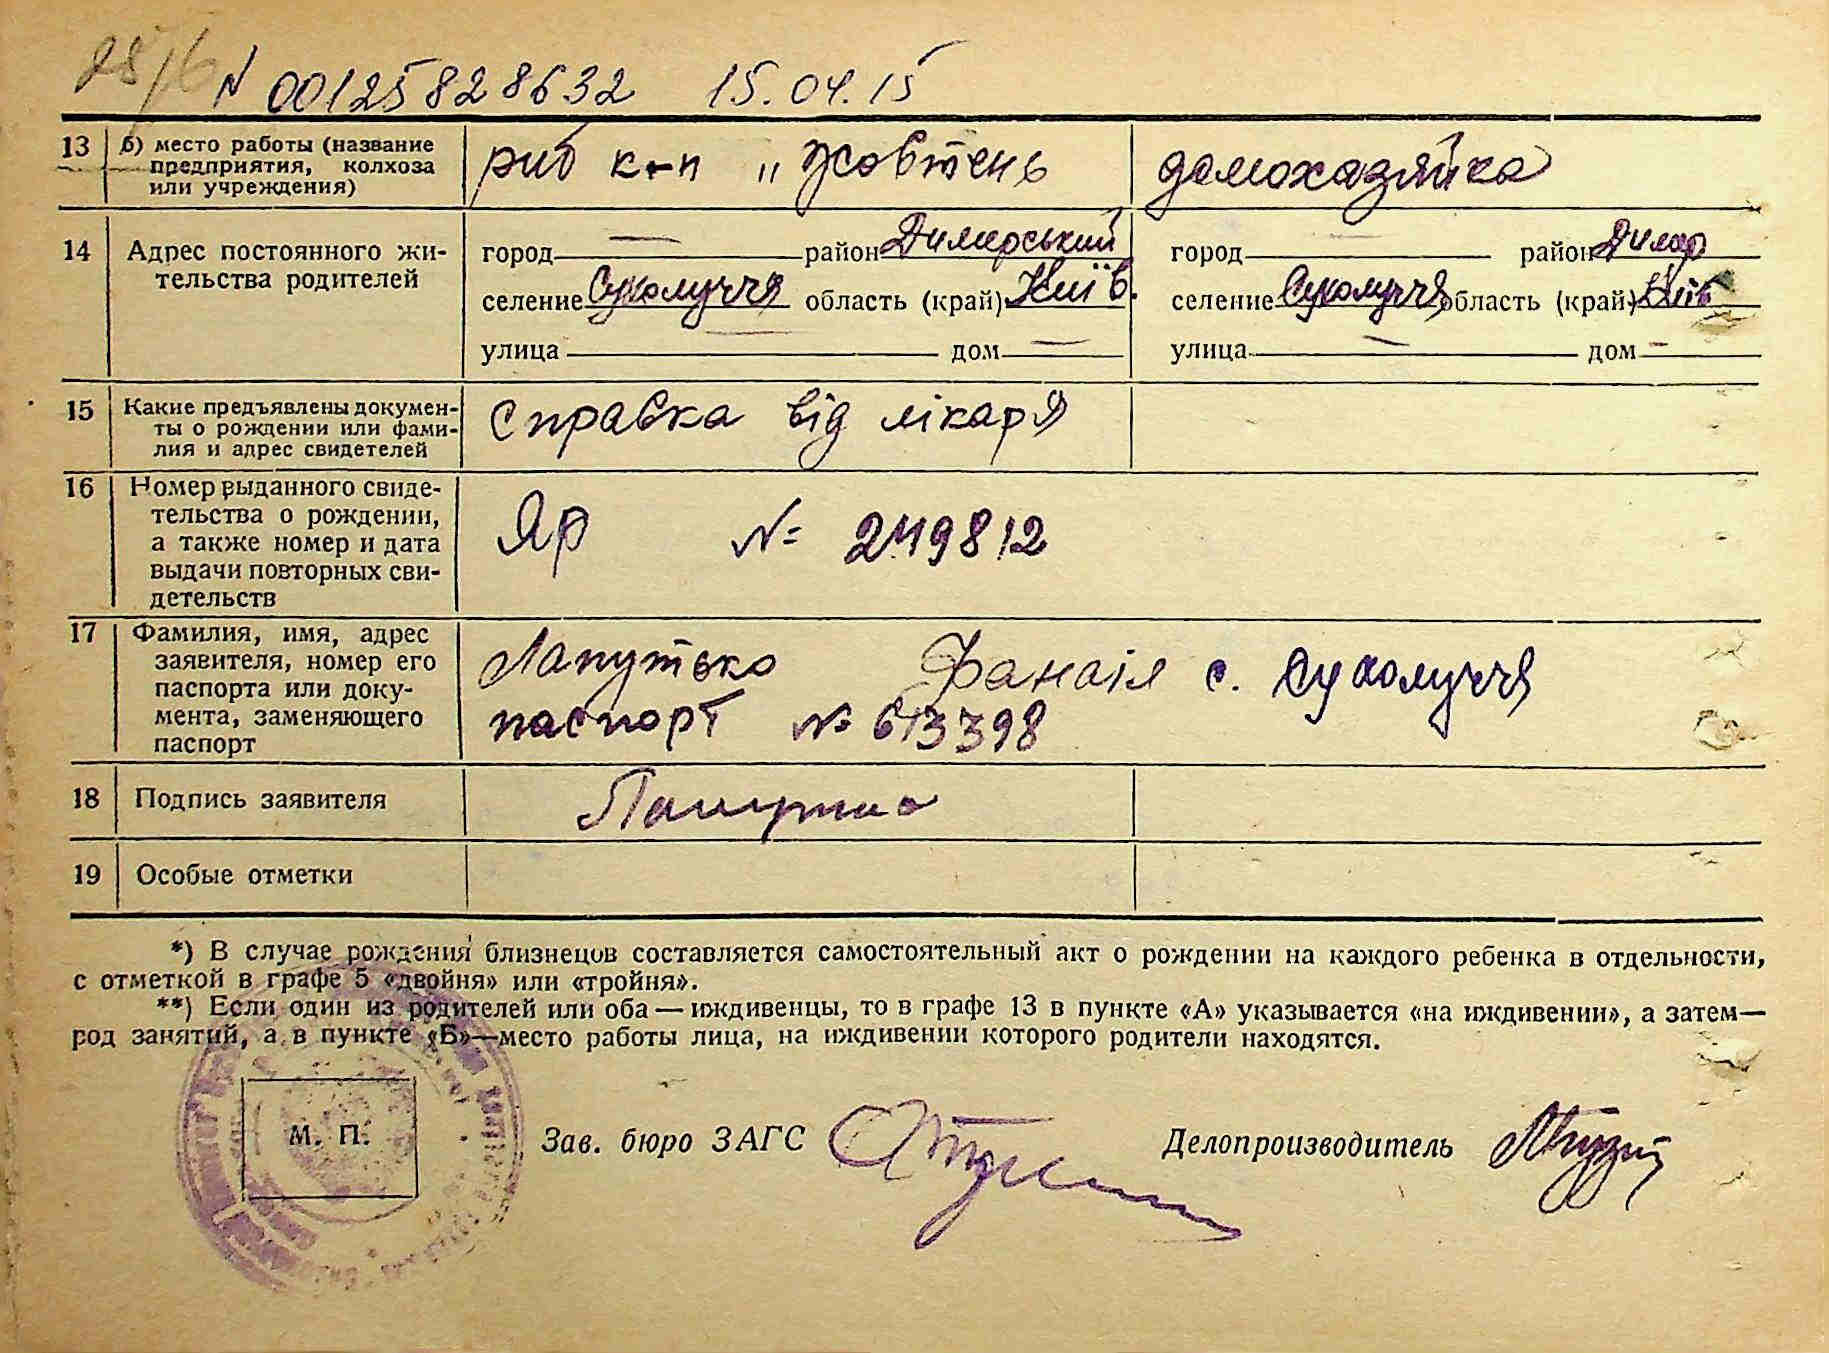 N 00125828632 15.04.15
13 б) место работы (название предприятия, колхоза или учреждения) риб к-п „Жовтень домохазяйка
14 Адрес постоянного жи-
тельства родителей
город — район Димерський город — район Димер
селение Сухолуччя область (край) Київ. селение Сухолуччя область (край) Київ
улица — дом — улица — дом —
15 Какие предъявлены докумен-
ты о рождении или фами-
лия и адрес свидетелей
справка від лікаря
16 Номер выданного свиде-
тельства о рождении,
а также номер и дата
выдачи повторных сви-
детельств
ЯР № 249812
17 Фамилия, имя, адрес
заявителя, номер его
паспорта или доку-
мента, заменяющего
паспорт
Лапутько с. Сухолуччя
паспорт № 613398
18 Подпись заявителя
19 Особые отметки
*) В случае рождения близнецов составляется самостоятельный акт о рождении на каждого ребенка в отдельности,
с отметкой в графе 5 «двойня» или «тройня».
**) Если один из родителей или оба — иждивенцы, то в графе 13 в пункте «А» указывается «на иждивении», а затем—
род занятий, а в пункте «Б»—место работы лица, на иждивении которого родители находятся.
М. П.
Зав. бюро ЗАГС Делопроизводитель